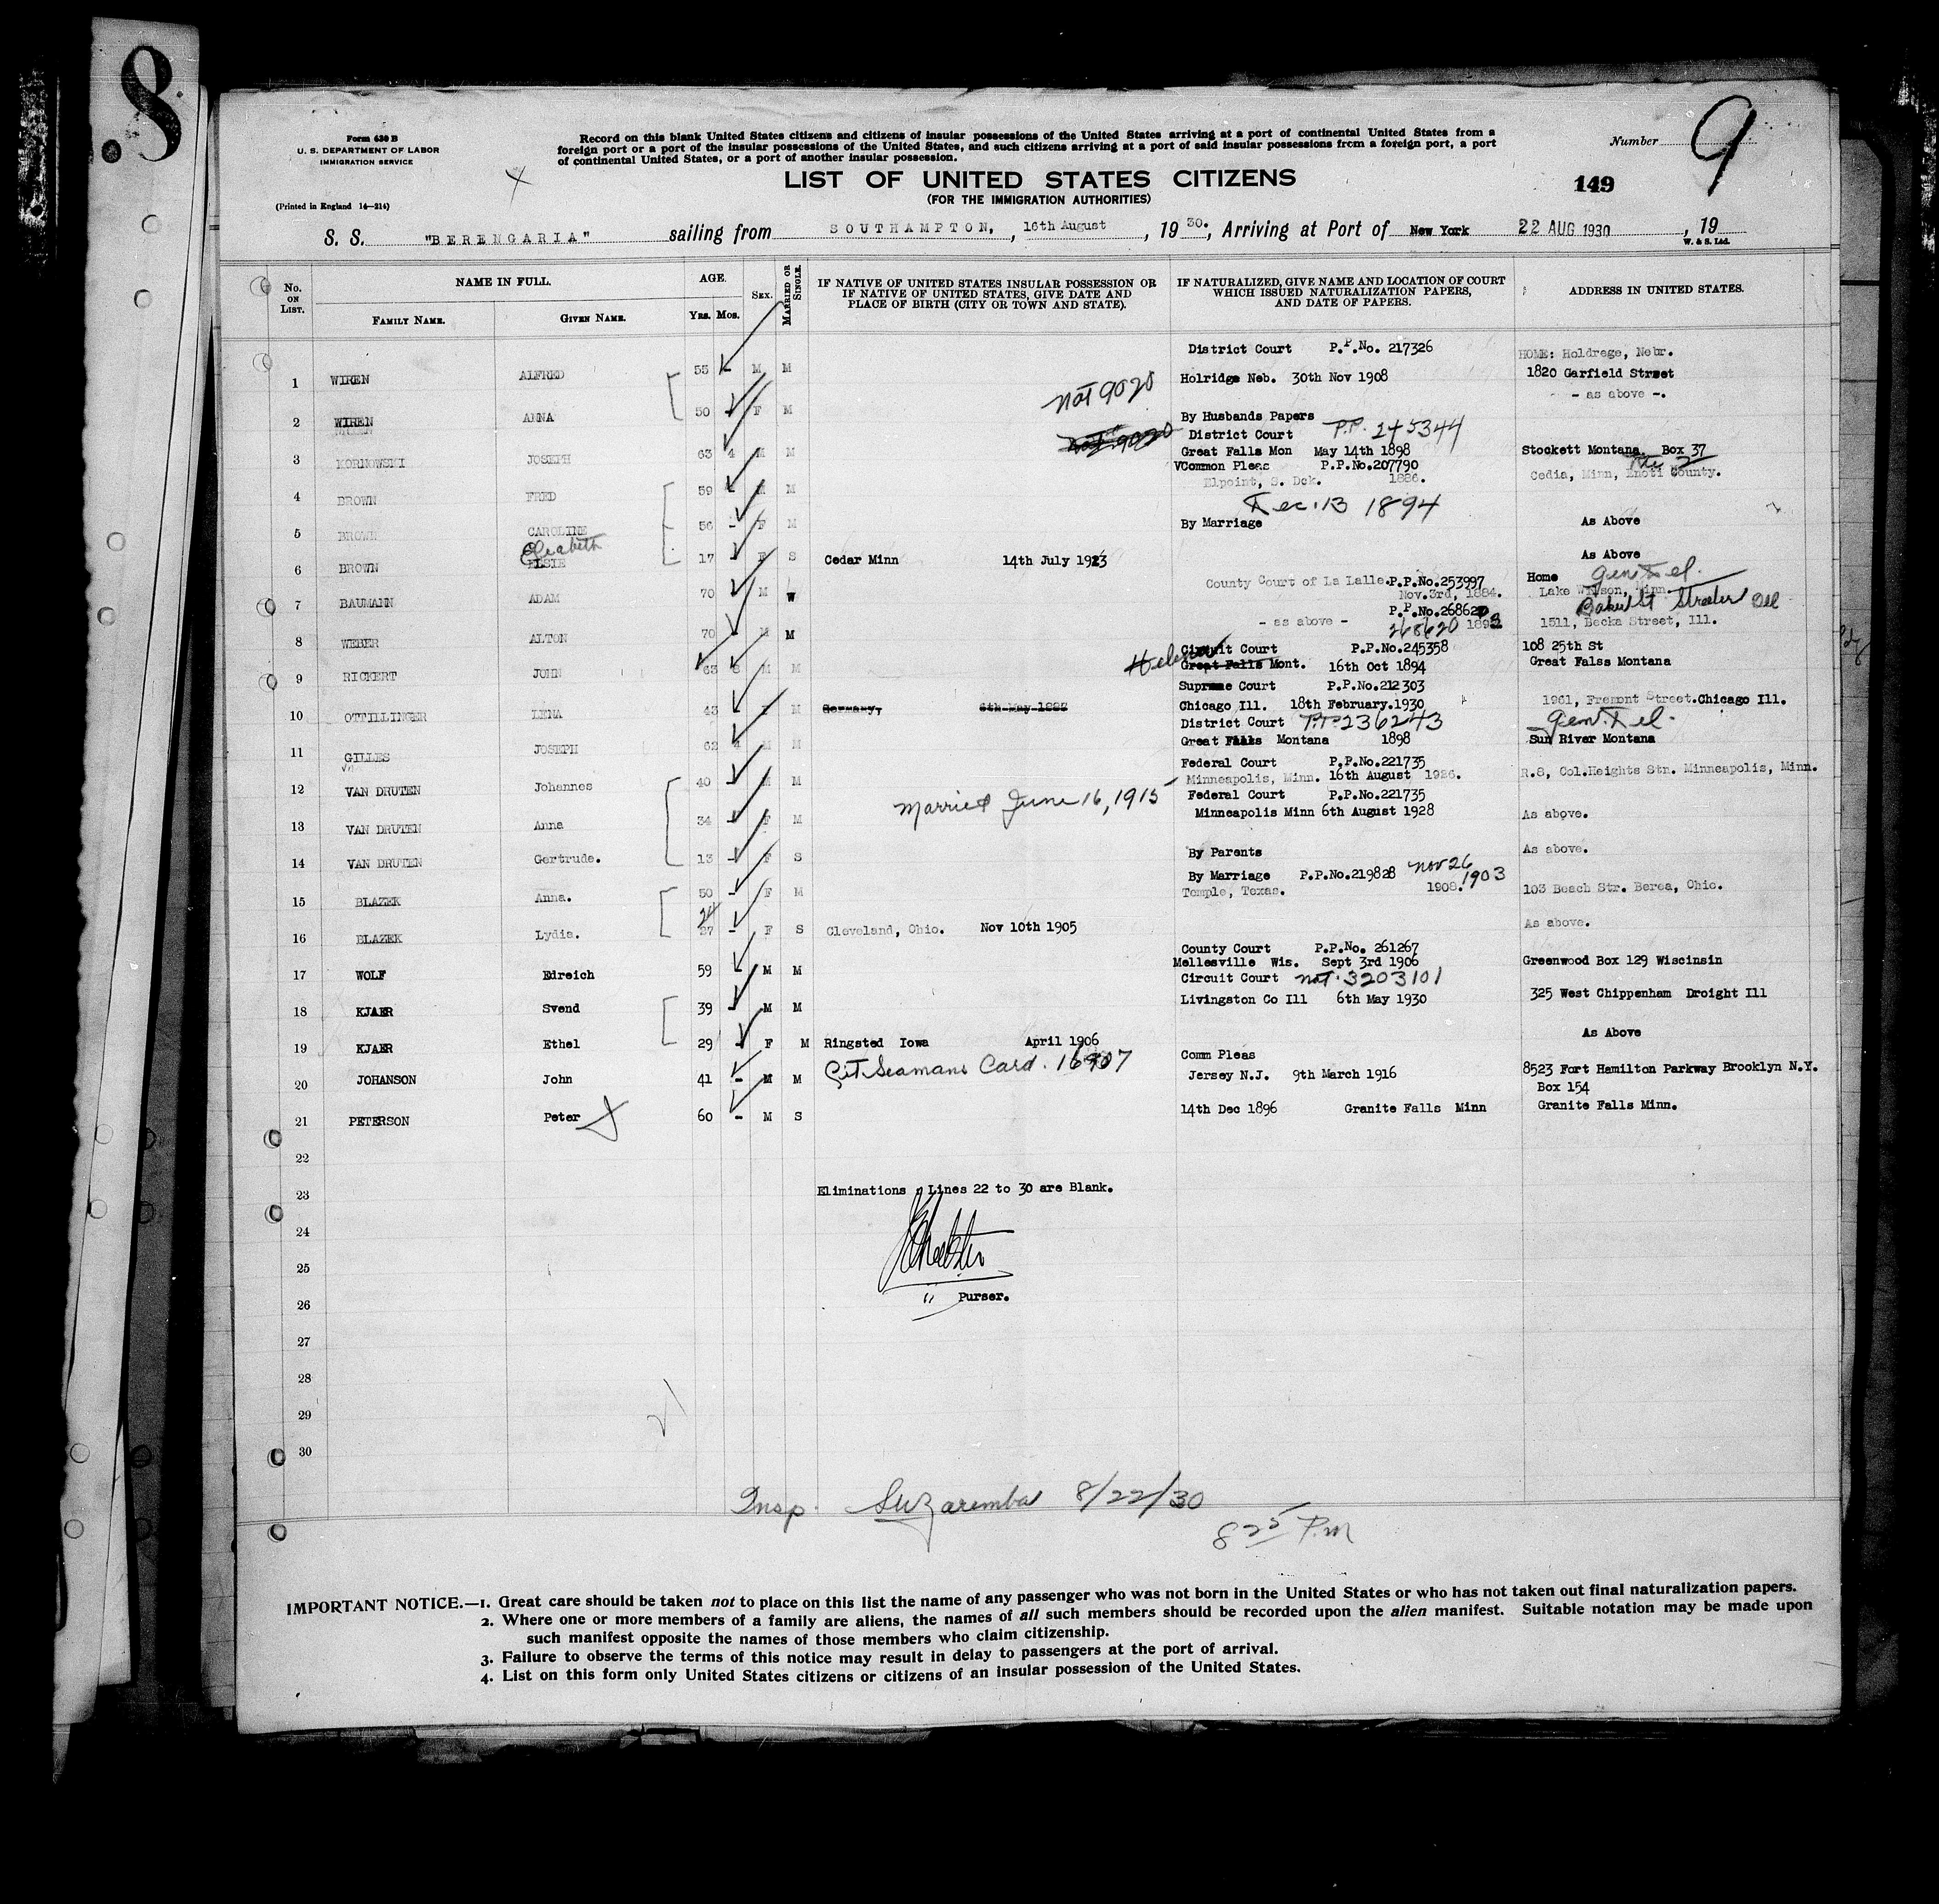 8
Form 630 B
U. S. DEPARTMENT OF LABOR
IMMIGRATION SERVICE
(Printed in England 14—214)
Record on this blank United States citizens and citizens of insular possessions of the United States arriving at a port of continental United States from a
foreign port or a port of the insular possessions of the United States, and such citizens arriving at a port of said insular possessions from a foreign port, a port
of continental United States, or a port of another insular possession.
Number 9
LIST OF UNITED STATES CITIZENS
(FOR THE IMMIGRATION AUTHORITIES)
149
S. S. "BERENGARIA" sailing from SOUTHAMPTON, , 16th August , 19 30. , Arriving at Port of New York 22 AUG 1930 , 19
W. & S. Ltd.
No. ON LIST. NAME IN FULL. FAMILY NAME. GIVEN NAME. AGE. YRS. MOS. SEX. MARRIED OR SINGLE. IF NATIVE OF UNITED STATES INSULAR POSSESSION OR IF NATIVE OF UNITED STATES, GIVE DATE AND PLACE OF BIRTH (CITY OR TOWN AND STATE). IF NATURALIZED, GIVE NAME AND LOCATION OF COURT WHICH ISSUED NATURALIZATION PAPERS, AND DATE OF PAPERS. ADDRESS IN UNITED STATES.
District Court P.P.No. 217326 HOME: Holdrege, Nebr.
1 WIREN ALFRED 55 - M M Holridge Neb. 30th Nov 1908 1820 Garfield Street
not 9020 - as above -.
2 WIREN ANNA 50 - F M By Husbands Papers
not 9020 District Court P.P. 245344
3 KORNOWSKI JOSEPH 63 4 M M Great Falls Mon May 14th 1898 Stockett Montana. Box 37
VCommon Pleas P.P.No.207790 Rte 2
4 BROWN FRED 59 - M M Elpoint, S. Dck. 1886. Cedia, Minn, Enoti County.
Dec. 13 1894
5 BROWN CAROLINE 56 - F M By Marriage As Above
Elisabeth
6 BROWN ELSIE 17 - F S Cedar Minn 14th July 1913 As Above
County Court of La Lalle. P.P.No.253997 Home Gen Del.
7 BAUMANN ADAM 70 - M W Nov.3rd, 1884. Lake Wilson, Minn.
P.P.No.268620 Street
8 WEBER ALTON 70 - M M - as above - 268620 1893 1511, Becka Street, Ill.
Circuit Court P.P.No.245358 108 25th St
9 RICKERT JOHN 63 8 M M Helena Great Falls Mont. 16th Oct 1894 Great Falss Montana
Supreme Court P.P.No.212303
10 OTTILLINGER LENA 43 F M Germany, 6th May 1885 Chicago Ill. 18th February.1930 1961, Fremont Street.Chicago Ill.
District Court P.P. 236243 Gen. Del.
11 GILLES JOSEPH 62 4 M M Great Falls Montana 1898 Sun River Montana
Federal Court P.P.No.221735
12 VAN DRUTEN Johannes 40 - M M Minneapolis, Minn. 16th August 1926. R.8, Col.Heights Stn. Minneapolis, Minn.
Married June 16, 1915 Federal Court P.P.No.221735
13 VAN DRUTEN Anna 34 - F M Minneapolis Minn 6th August 1928 As above.
14 VAN DRUTEN Gertrude. 13 - F S By Parents As above.
By Marriage P.P.No.219828 Nov 26 1903
15 BLAZEK Anna. 50 - F M Temple, Texas. 1908. 103 Beach Str. Berea, Ohio.
24
16 BLAZEK Lydia. 27 - F S Cleveland, Ohio. Nov 10th 1905 As above.
County Court P.P.No. 261267
17 WOLF Edreich 59 - M M Mellesville Wis. Sept 3rd 1906 Greenwood Box 129 Wiscinsin
Circuit Court nat. 3203101
18 KJAER Svend 39 - M M Livingston Co Ill 6th May 1930 325 West Chippenham Droight Ill
19 KJAER Ethel 29 - F M Ringsted Iowa April 1906 As Above
Cit. Seamans Card. 16907 Comm Pleas
20 JOHANSON John 41 - M M Jersey N.J. 9th March 1916 8523 Fort Hamilton Parkway Brooklyn N.Y.
Box 154
21 PETERSON Peter 60 - M S 14th Dec 1896 Granite Falls Minn Granite Falls Minn.
22
23 Eliminations : Lines 22 to 30 are Blank.
24
25
26 Purser.
27
28
29
30
Insp. 8/22/30
8 25 P.m
IMPORTANT NOTICE.—1. Great care should be taken not to place on this list the name of any passenger who was not born in the United States or who has not taken out final naturalization papers.
2. Where one or more members of a family are aliens, the names of all such members should be recorded upon the alien manifest. Suitable notation may be made upon
such manifest opposite the names of those members who claim citizenship.
3. Failure to observe the terms of this notice may result in delay to passengers at the port of arrival.
4. List on this form only United States citizens or citizens of an insular possession of the United States.